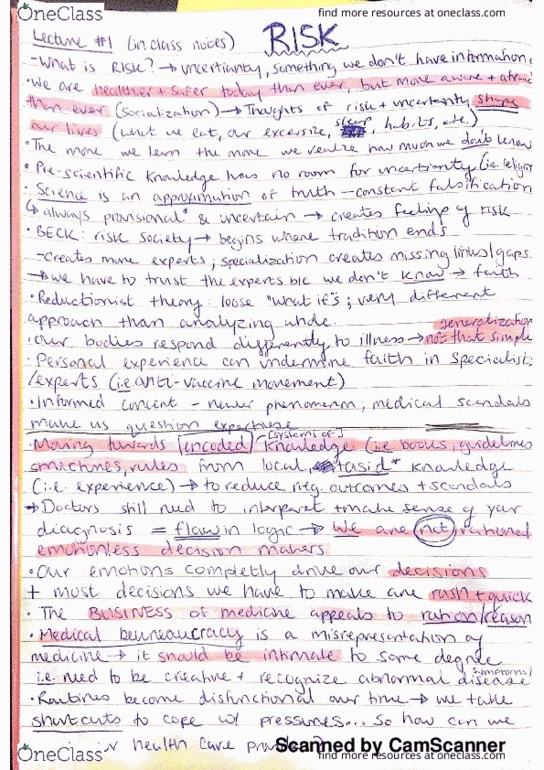 OneClass
find more resources at oneclass.com
Lecture #1 (in class notes) RISK
-What is RISK? → uncertianty, something we don't have information
•We are healthier + safer today than ever, but more aware + afraid
than ever (socialization) → Thoughts of risk + uncertainty shape
our lives (what we eat, our excersize, sleep, habits, etc.)
•The more we learn the more we realize how much we don't know
•Pre-scientific knowledge has no room for uncertianty (i.e. religion
•Science is an approximation of truth - constant falsification
↳ always provisional* & uncertain → creates feeling of risk
•BECK: risk society → begins where tradition ends
-creates more experts; specialization creates missing links/gaps
→ we have to trust the experts b/c we don't know → faith
•Reductionist theory: loose "what if's"; very different
approach than analyzing whole. generalization
•our bodies respond differently to illness → not that simple
•Personal experience can undermine faith in specialist
/experts (i.e anti-vaccine movement)
•Informed concent - newer phenomenm, medical scandals
make us question expertise
•Moving towards encoded [systems of] knowledge (i.e. books, guidelines
machines, rules from local, tasid* knowledge
(i.e. experience) → to reduce neg. outcomes + scandals
→ Doctors still need to interpret + make sense of your
diagnosis = flaw in logic → we are not rational
emotionless decision makers
•Our emotions completly drive our decisions
+ most decisions we have to make are rash + quick
•The BUSINESS of medicine appeals to ration/reason
•Medical beureaucracy is a misrepresentation of
medicine → it should be intimate to some degree
i.e. need to be creative + recognize abnormal symptoms/ disease
•Routines become disfunctional over time → we take
shortcuts to cope w/ pressures... so how can we
health care
Scanned by CamScanner
OneClass
find more resources at oneclass.com